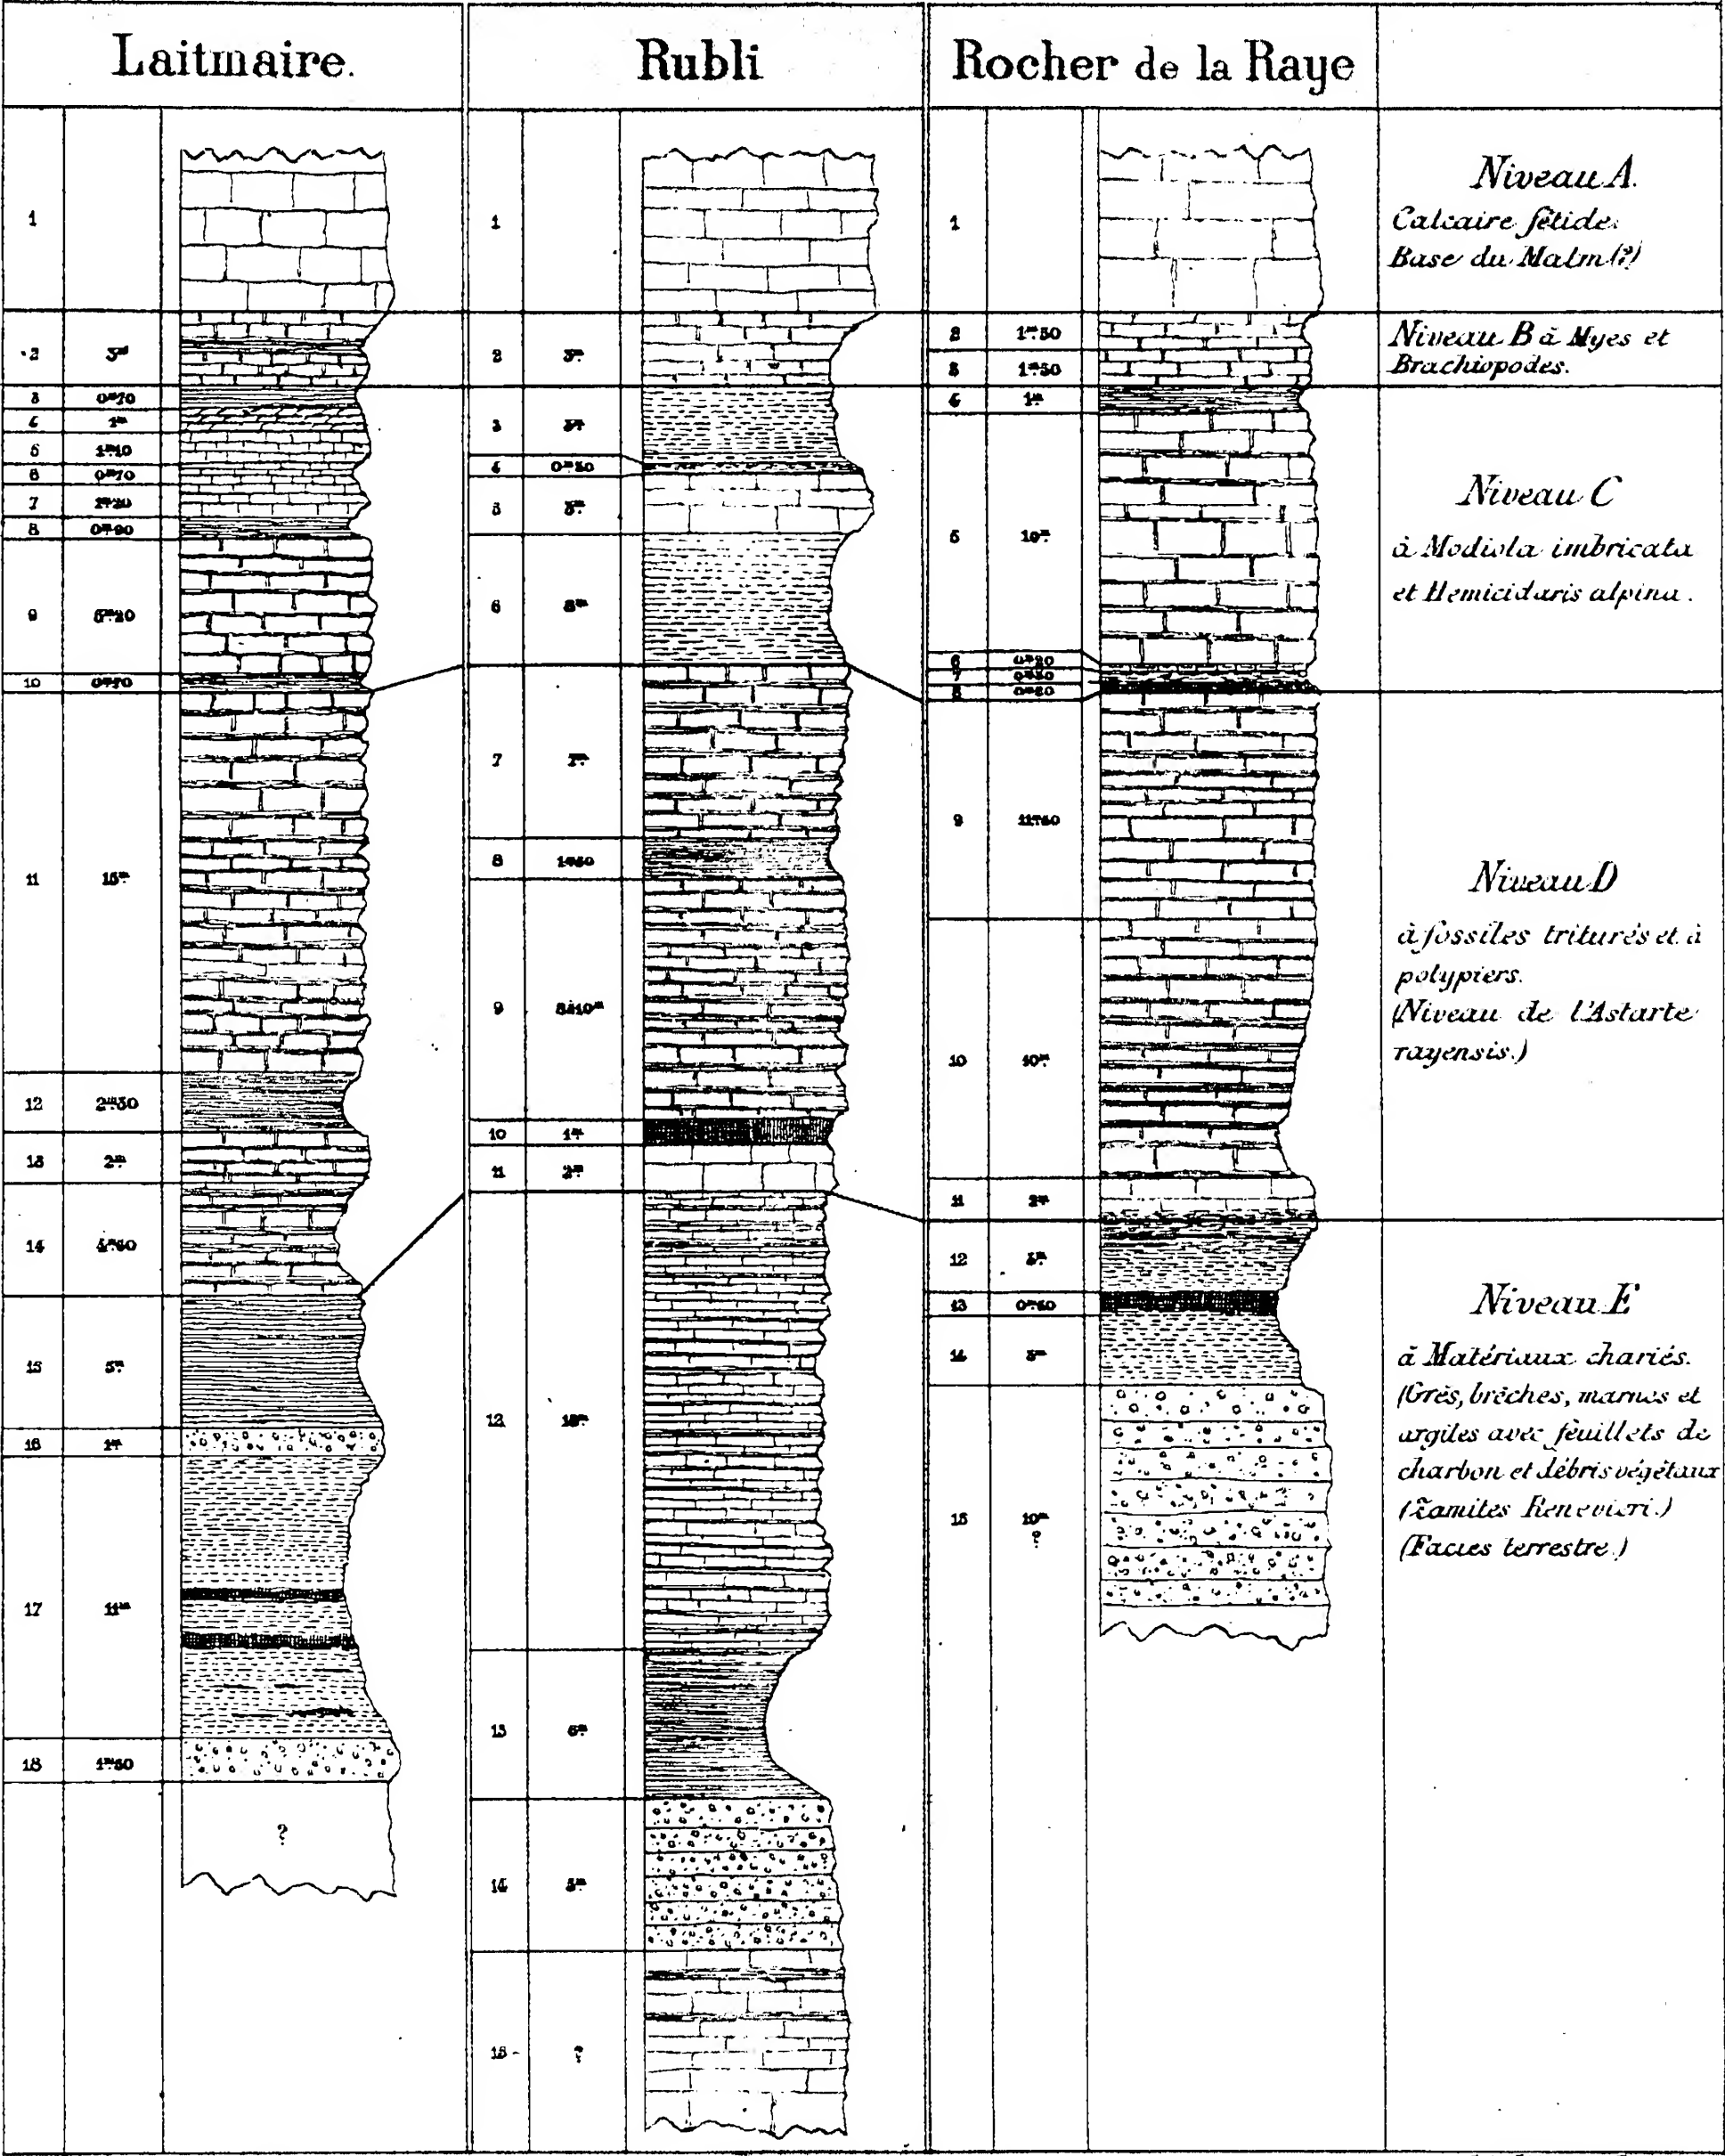 Laitmaire.
Rubli
Rocher de la Raye
1
2 3m
3 0m70
4 1m
5 1m10
6 0m70
7
8 0m90
9 5m20
10
11 15m
12 2m50
13 2m
14 4m60
15 5m
16 1m
17 11m
18 1m50
?
1
2 3m
3
4
5
6
7 7m
8 1m50
9 8à10m
10 1m
11 2m
12
13 6m
14 5m
15 ?
1
2 1m50
3 1m50
4 1m
5 10m
6 0m20
7
8
9
10 10m
11 2m
12
13
14
15 10m
?
Niveau A.
Calcaire fétide.
Base du Malm (?)
Niveau B à Myes et
Brachiopodes.
Niveau C
à Modiola imbricata
et Hemicidaris alpina.
Niveau D
à fossiles triturés et à
polypiers.
(Niveau de l'Astarte
rayensis.)
Niveau E
à Matériaux chariés.
(Grès, brèches, marnes et
argiles avec feuillets de
charbon et débris végétaux
(Zamites Renevieri.)
(Facies terrestre.)